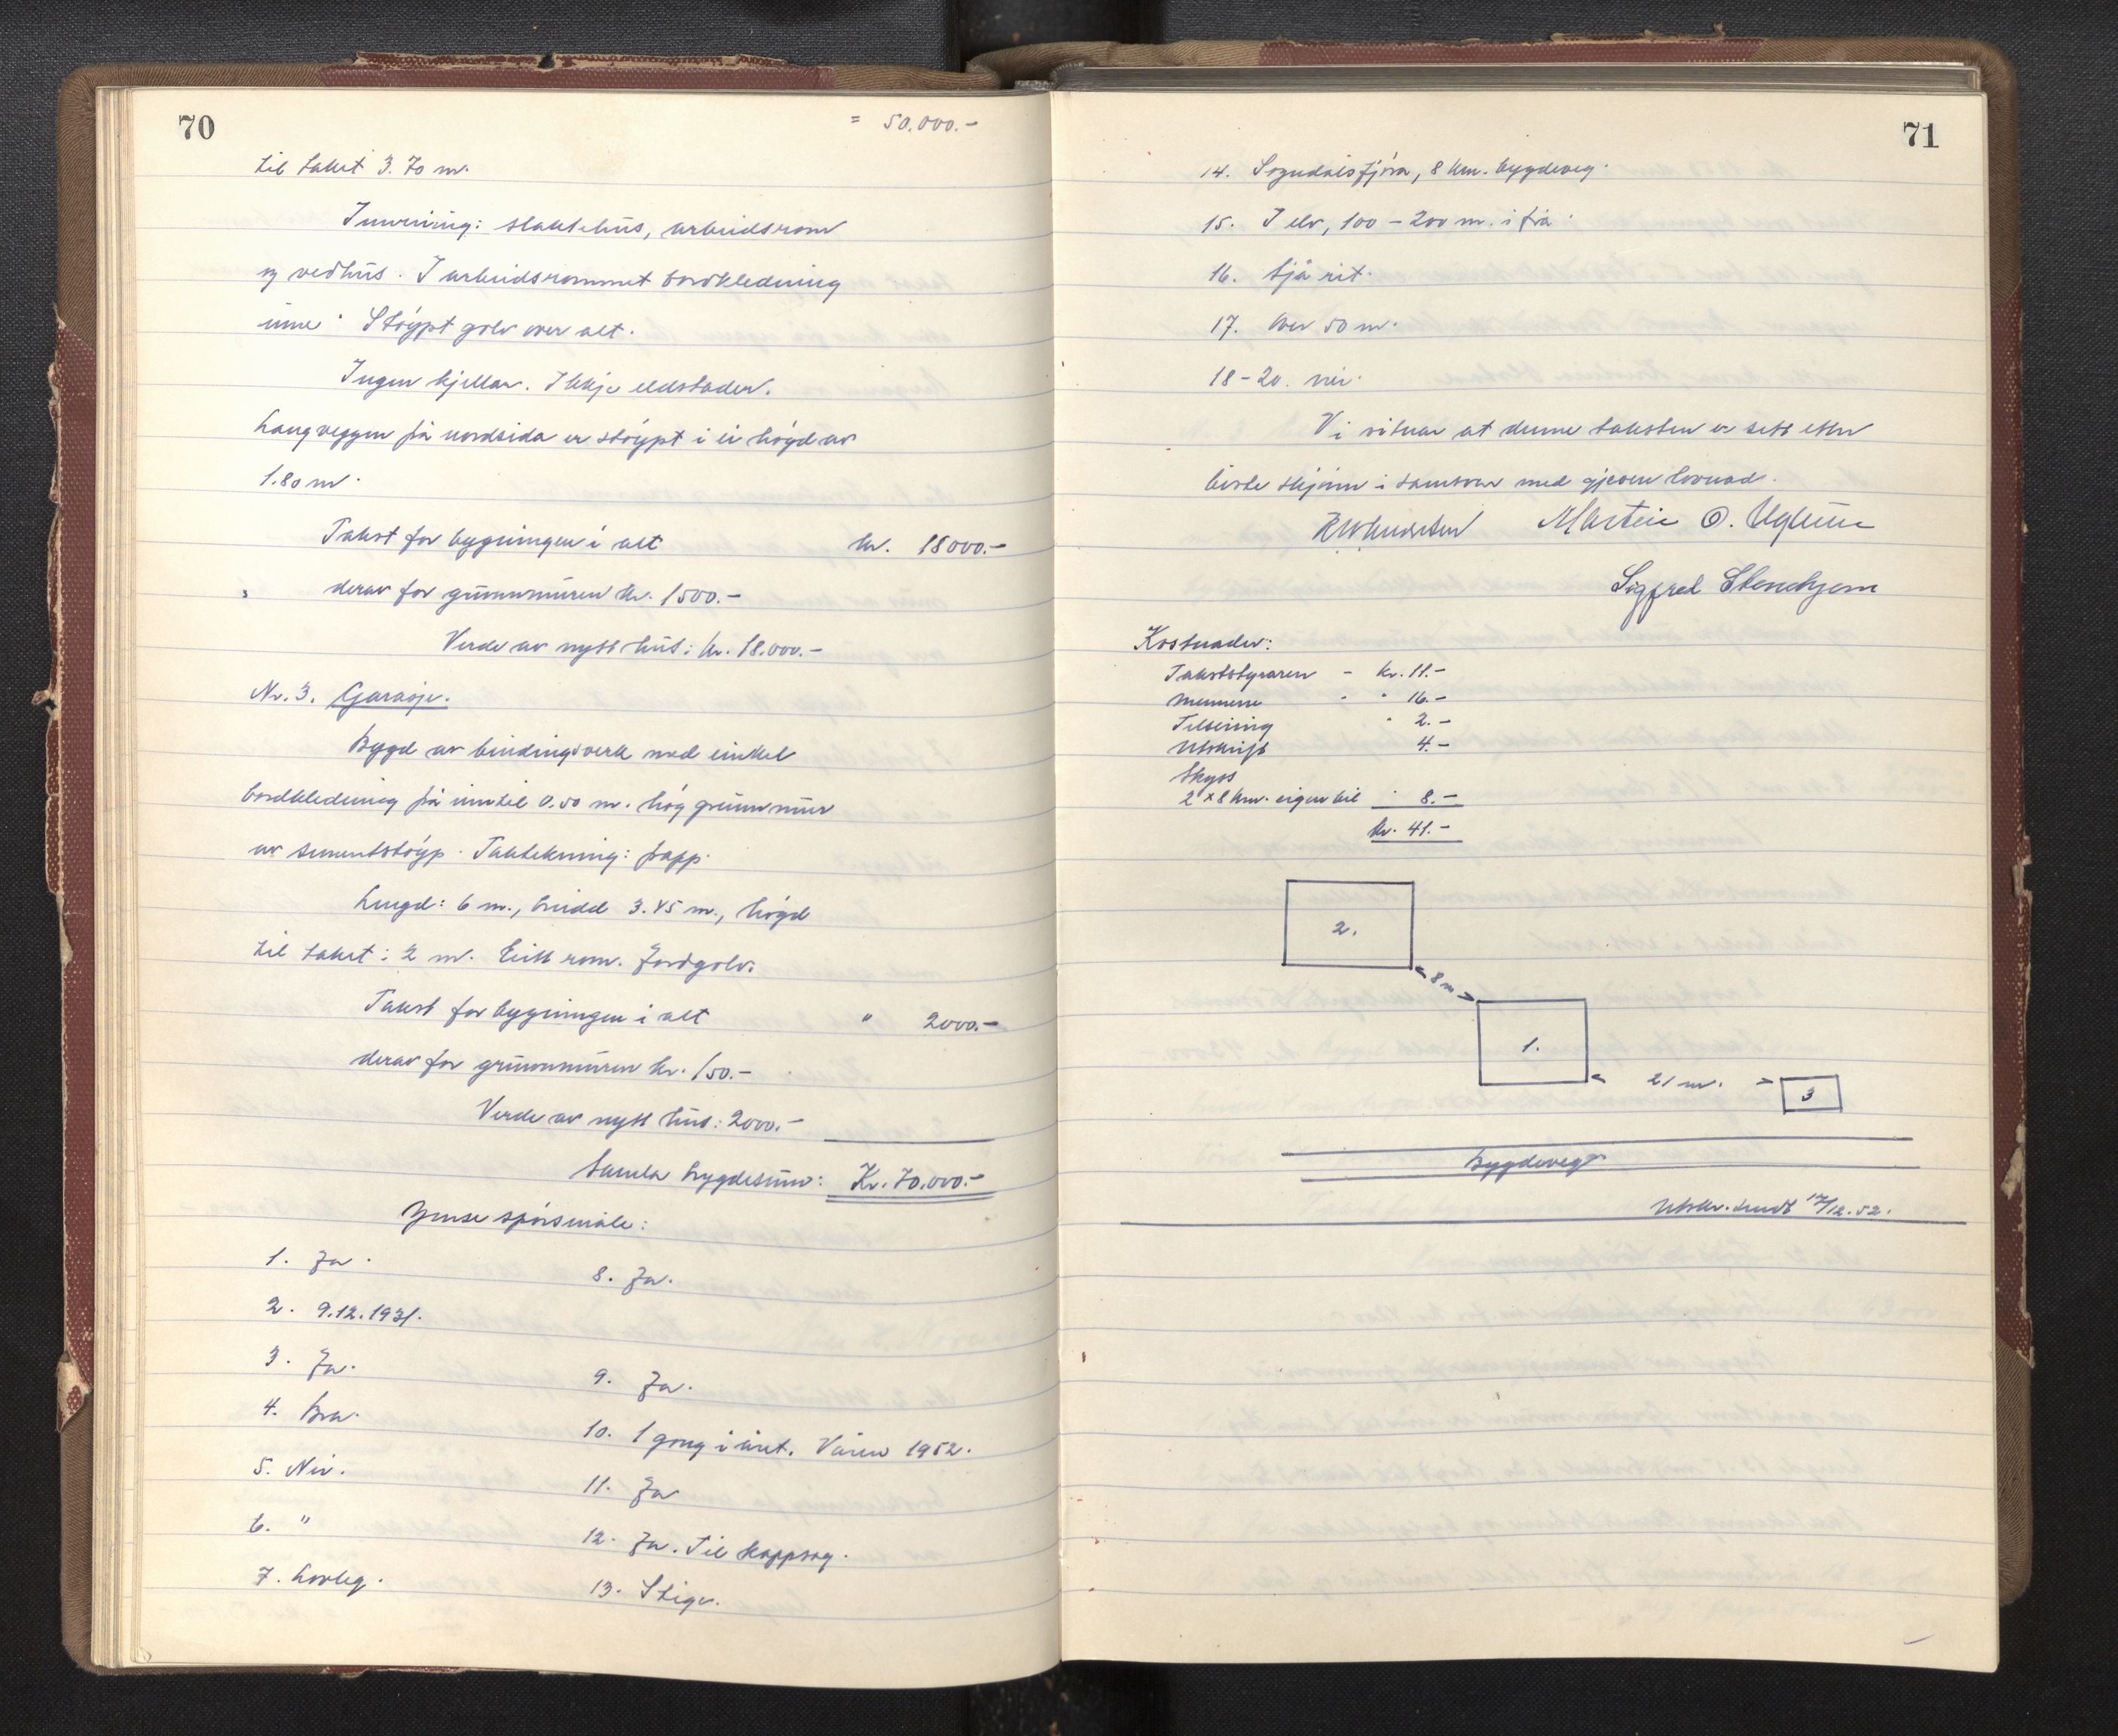 70
= 50.000.-
til taket 3.70 m.
Innreiing: slaktehus, arbeidsrom
og vedhus. I arbeidsrommet bordkledning
inne. Støypt golv over alt.
Ingen kjellar. Ikkje eldstader.
Langveggen på nordsida er støypt i ei høgd av
1.80 m.
Takst for bygningen i alt kr. 18000.-
derav for grunnmuren kr. 1500.-
Verde av nytt hus: kr. 18.000.-
Nr. 3. Garasje.
Bygd av bindingsverk med einkel
bordkledning på inntil 0.50 m. høg grunnmur
av sementstøyp. Taktekning: papp.
Lengd: 6 m., breidd 3.45 m., høgd
til taket: 2 m. Eitt rom. Jordgolv.
Takst for bygningen i alt " 2000.-
derav for grunnmuren kr. 150.-
Verde av nytt hus: 2000.-
Samla brygdesum: Kr. 70.000.-
Ymse spørsmåle:
1. Ja.
8. Ja.
2. 9.12.1931.
3. Ja.
9. Ja.
4. Bra.
10. 1 gong i året. Våren 1952.
5. Nei.
11. Ja
6. "
12. Ja. Til kappsag.
7. Lovleg.
13. Stige.
71
14. Sogndalsfjøra, 8 km. bygdeveg.
15. I elv, 100 - 200 m. i frå.
16. Sjå rit.
17. Over 50 m.
18-20. nei.
Vi vitnar at denne taksten er sett etter
beste skjønn i samsvar med gjeven lovnad.
Martin O. Uglum
Sigfred Stenehjem
Kostnader:
Takststyraren - kr. 11.-
mennene " " 16.-
Tilseiing " 2.-
Utskrift 4.-
Skyss
2 x 8 km. eigen bil " 8.-
kr. 41.-
2.
8 m
1.
21 m.
3
Bygdeveg
Utskr. sendt 17/12.52.